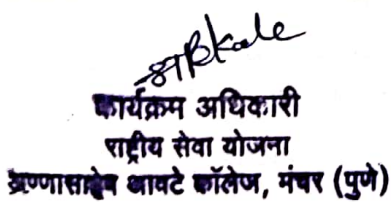 कार्यक्रम अधिकारी
राष्ट्रीय सेवा योजना
अण्णासाहेब आवटे कॉलेज, मंचर (पुणे)